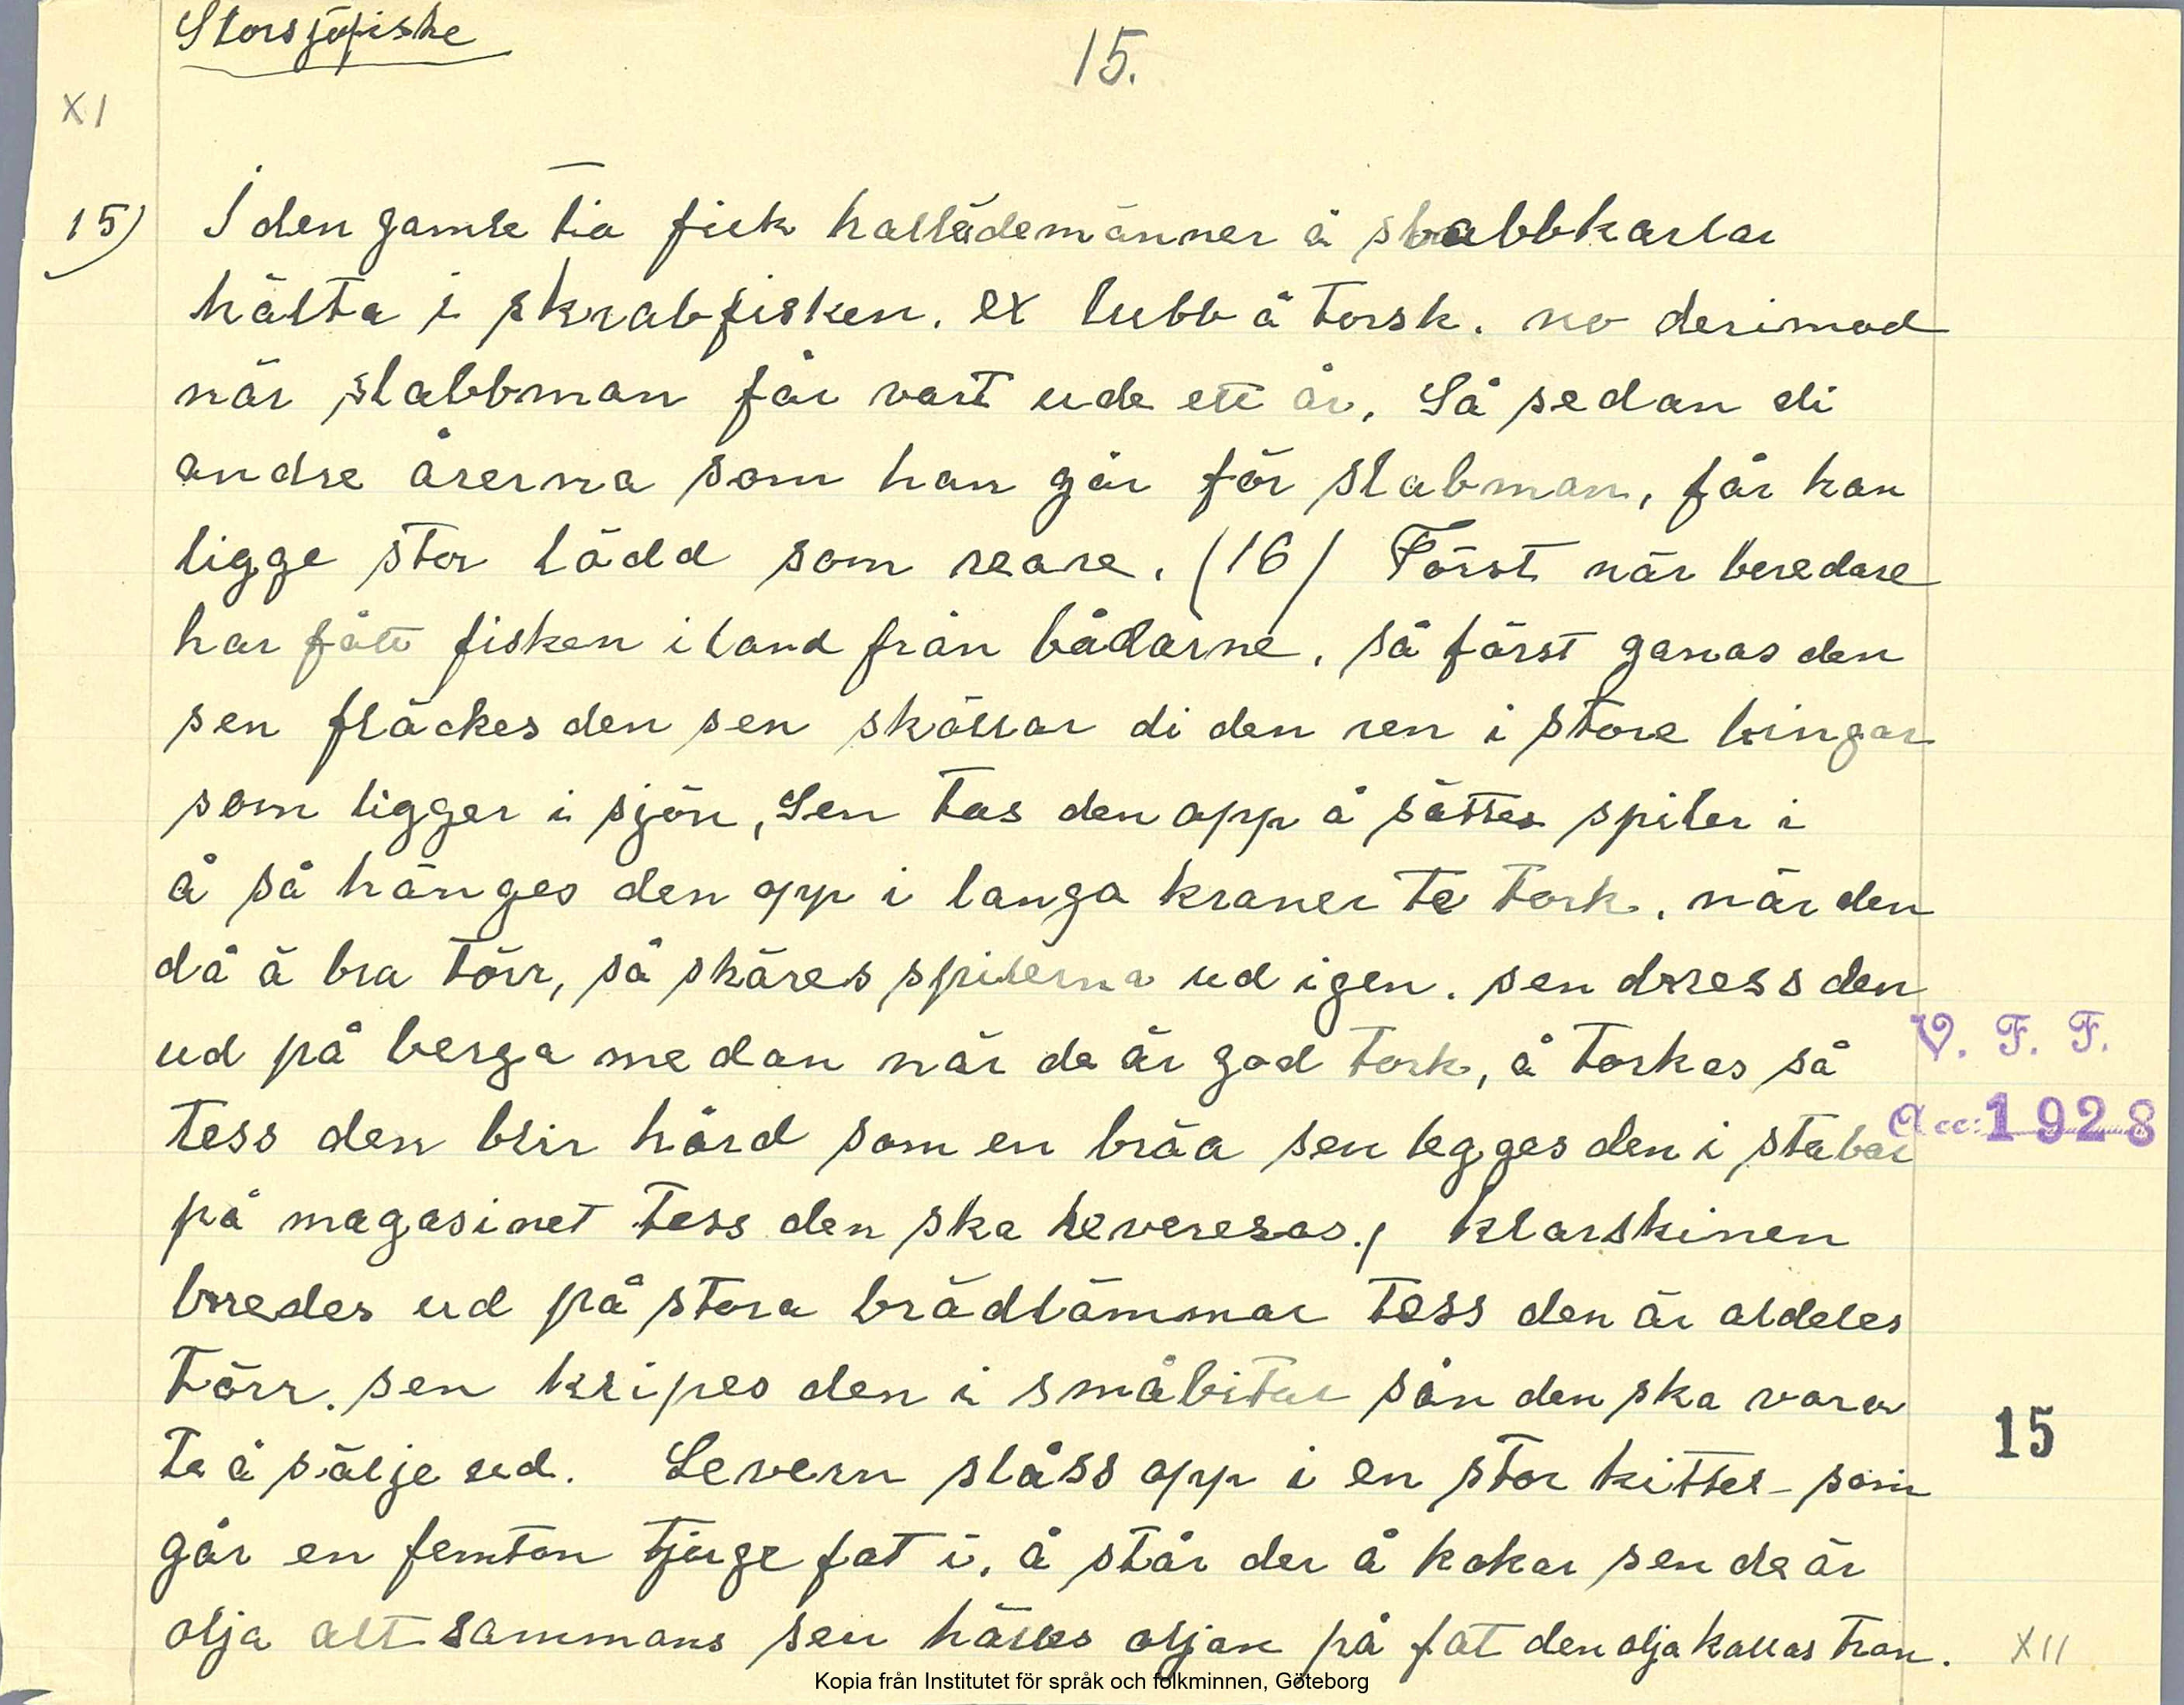 Storsjöfiske
15.
XI
15) I den gamle tia fick hallädemänner å slabbkarlar
hälta i skrabfisken. ex lubb å torsk. no derimod
när slabbman får vart ude ett år. Så sedan di
andre årerna som han går för slabman, får han
ligge stor lädd som reare. (16) Först när beredare
har fått fisken iland från bådarne, så först ganas den
sen fläckes den sen sköllar di den ren i store bingar
som ligger i sjön, Sen tas den opp å sättes spiler i
å så hänges den opp i langa kraner te tork. när den
då ä bra törr, så skäres spilerna ud igen. sen dress den
ud på berga medan när de är god tork, å torkes så
tess den blir hård som en bräa sen legges den i stabar
på magasinet tess den ska levereras. klarskinen
bredes ud på stora brädlämmar tess den är aldeles
törr. sen klipes den i småbitar sån den ska vara
te å sälje ud. Levern slåss opp i en stor kittel som
går en femton tjärge fat i. å står der å kokar sen de är
olja alt sammans sen hälles oljan på fat den olja kallas tran.
V. F. F.
Acc: 1928
15
XII
Kopia från Institutet för språk och folkminnen, Göteborg